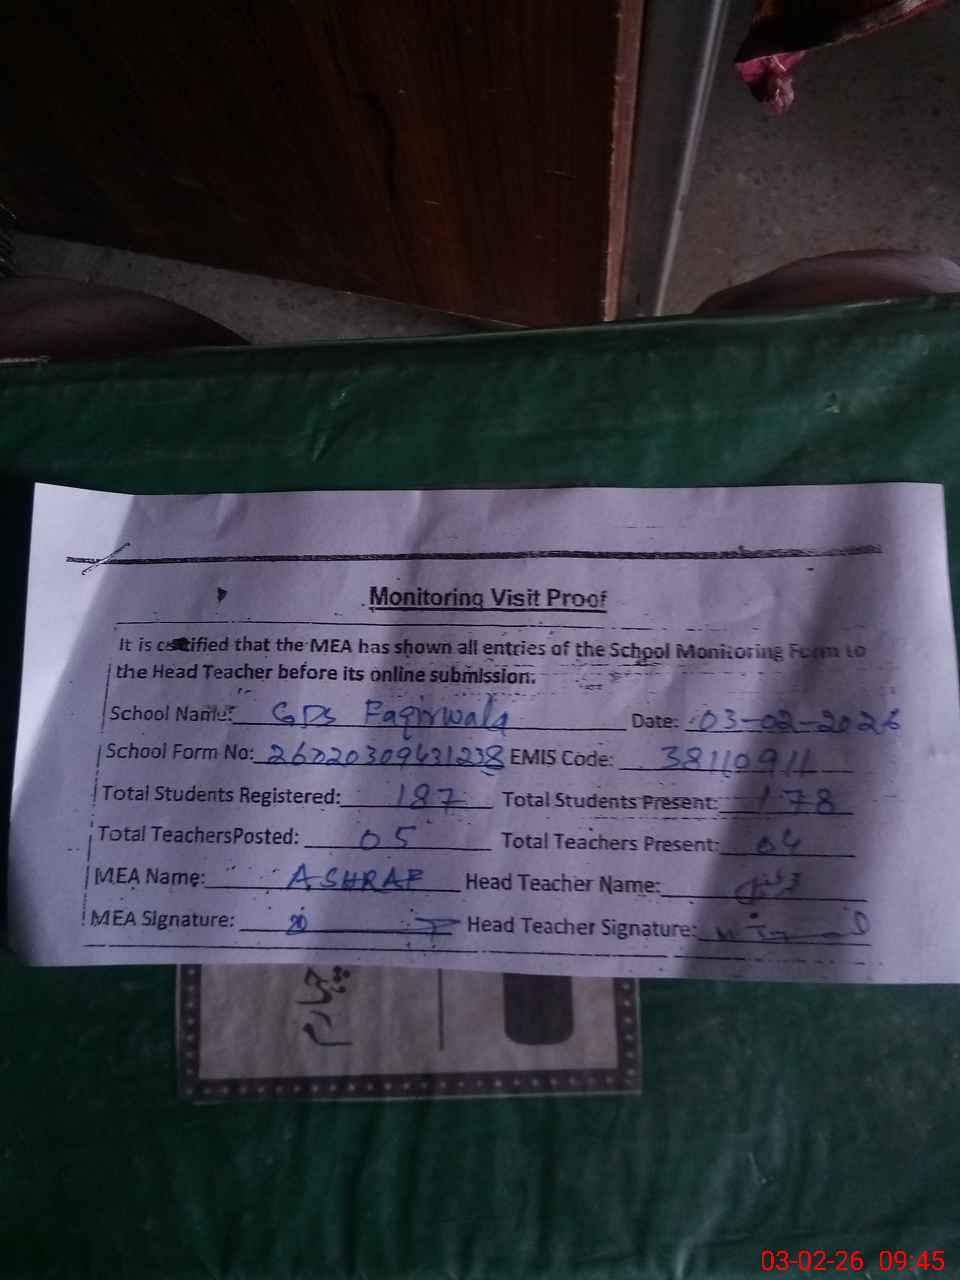 Monitoring Visit Proof
It is certified that the MEA has shown all entries of the School Monitoring Form to
the Head Teacher before its online submission.
School Name: GPS Faqirwala Date: 03-02-2026
School Form No: 26020309431238 EMIS Code: 38110911
Total Students Registered: 187 Total Students Present: 178
Total TeachersPosted: 05 Total Teachers Present: 04
MEA Name: ASHRAF Head Teacher Name:
MEA Signature: Head Teacher Signature:
03-02-26 09:45